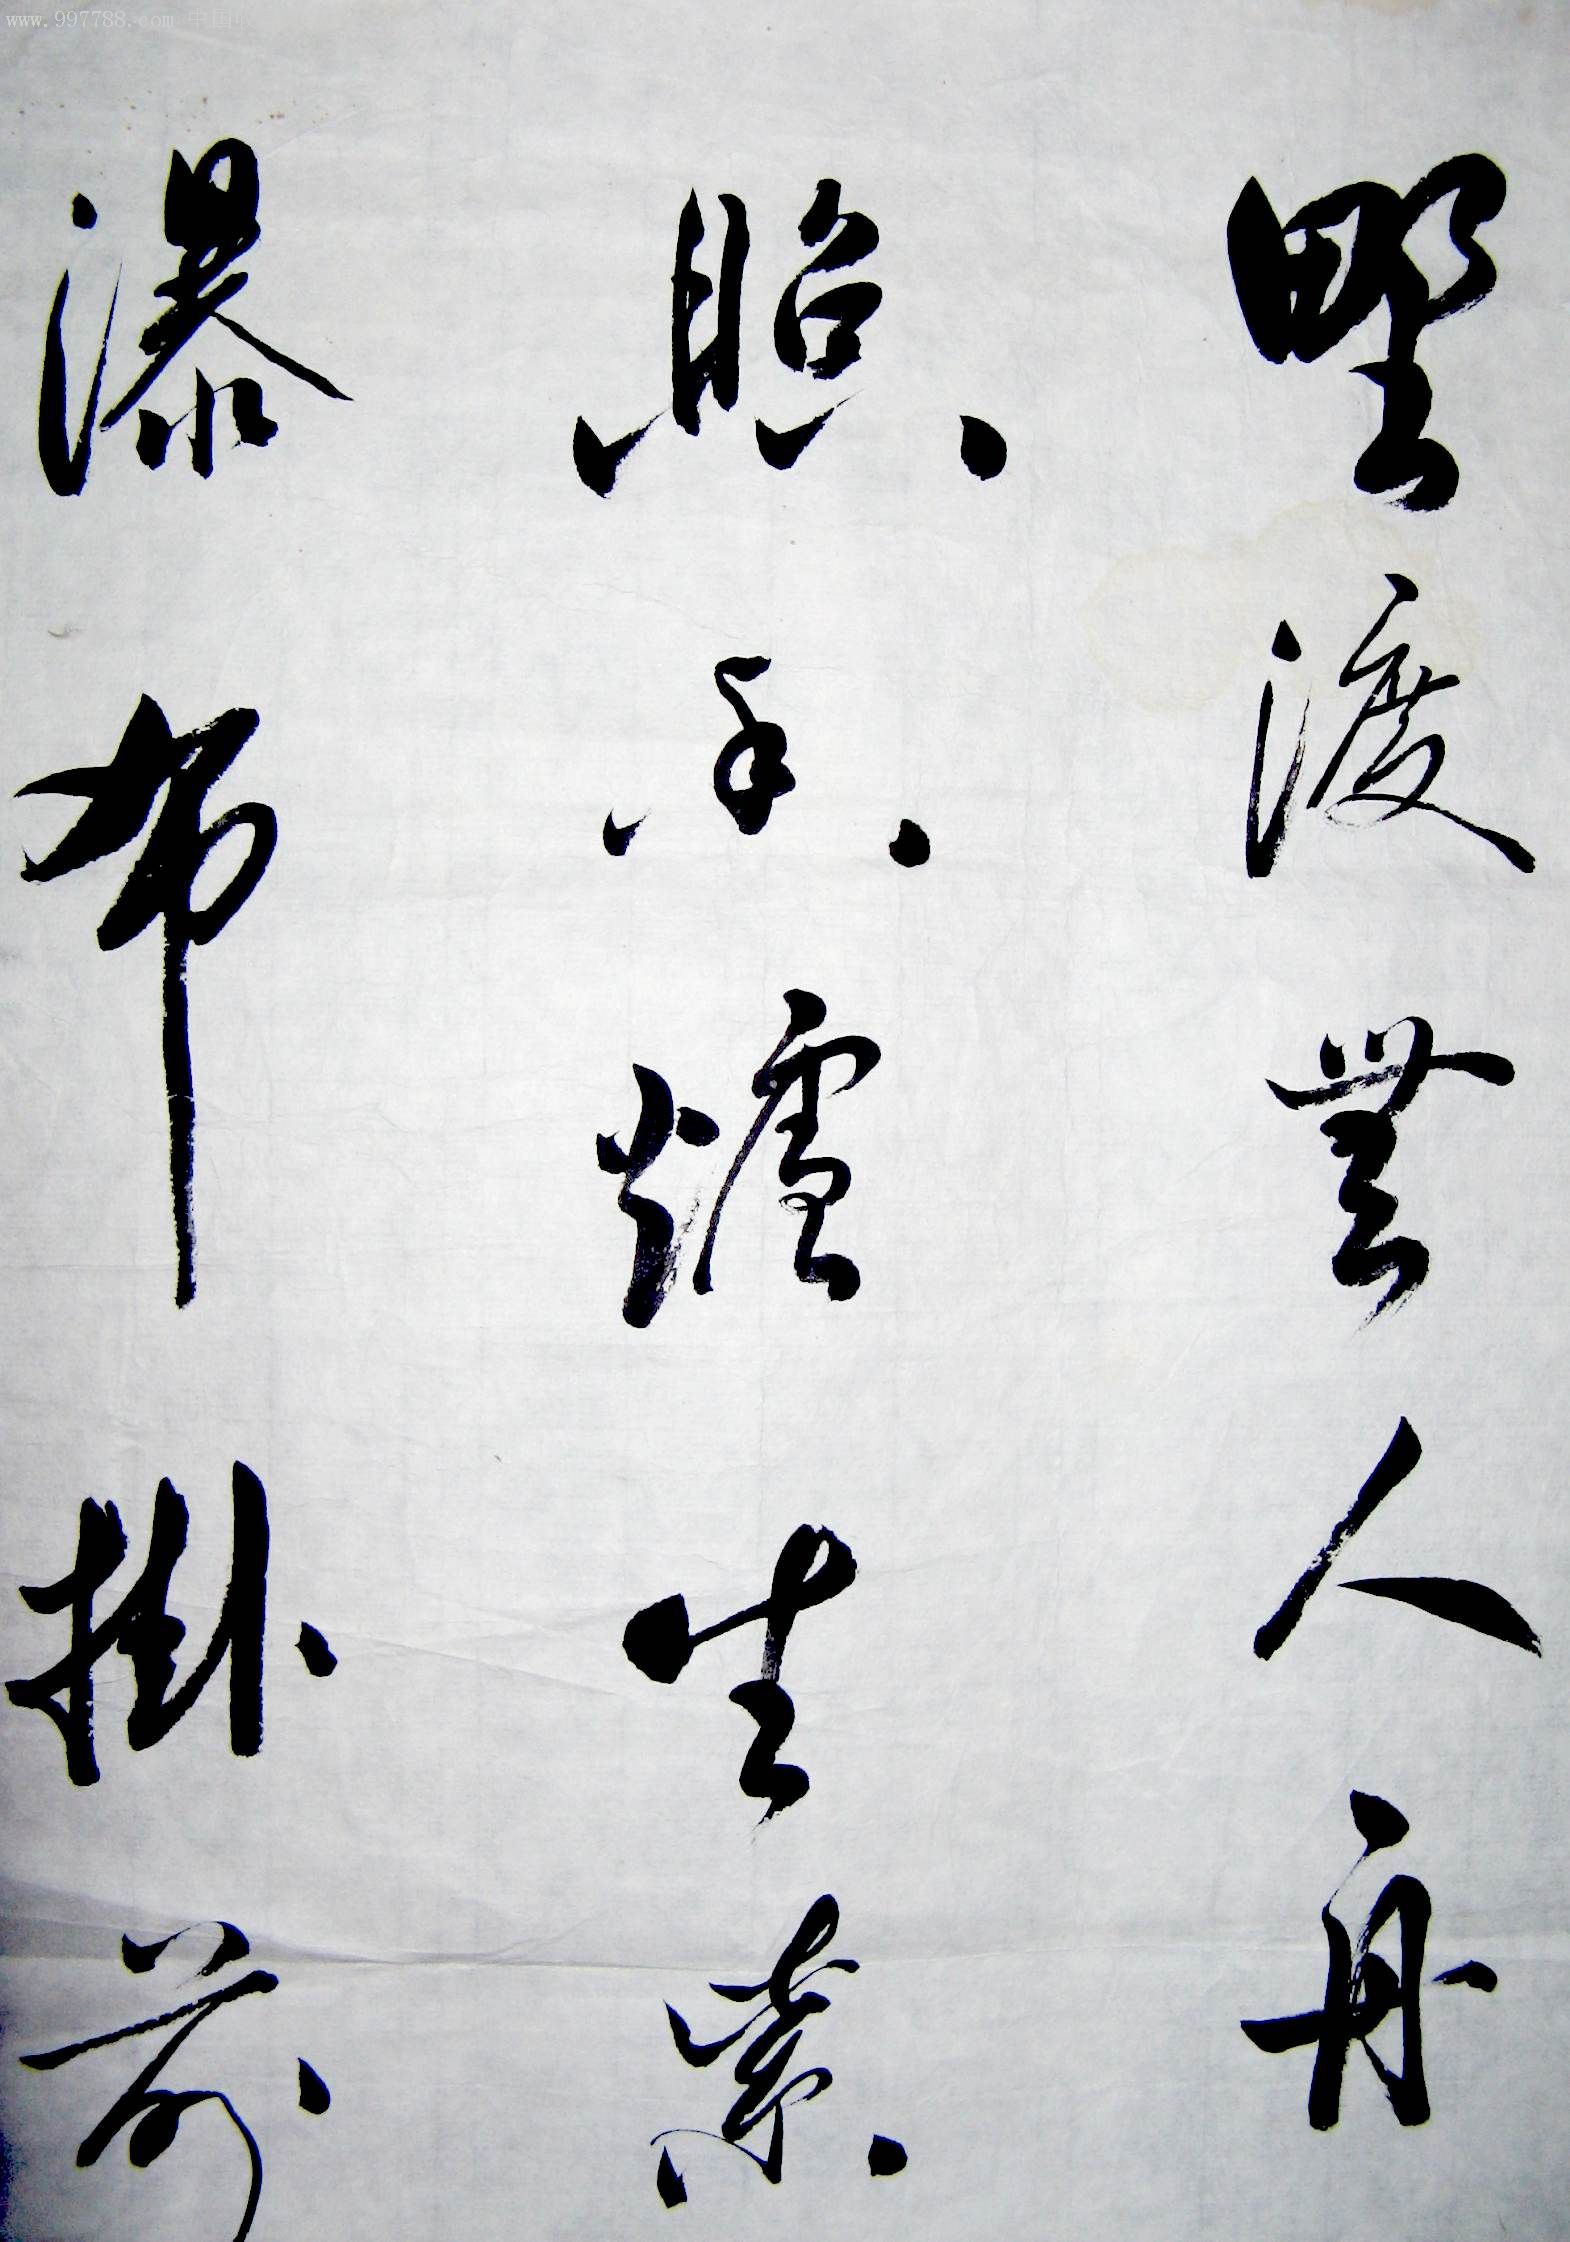 www.997788.com 中国收
野渡無人舟
照香爐生紫
瀑布掛前